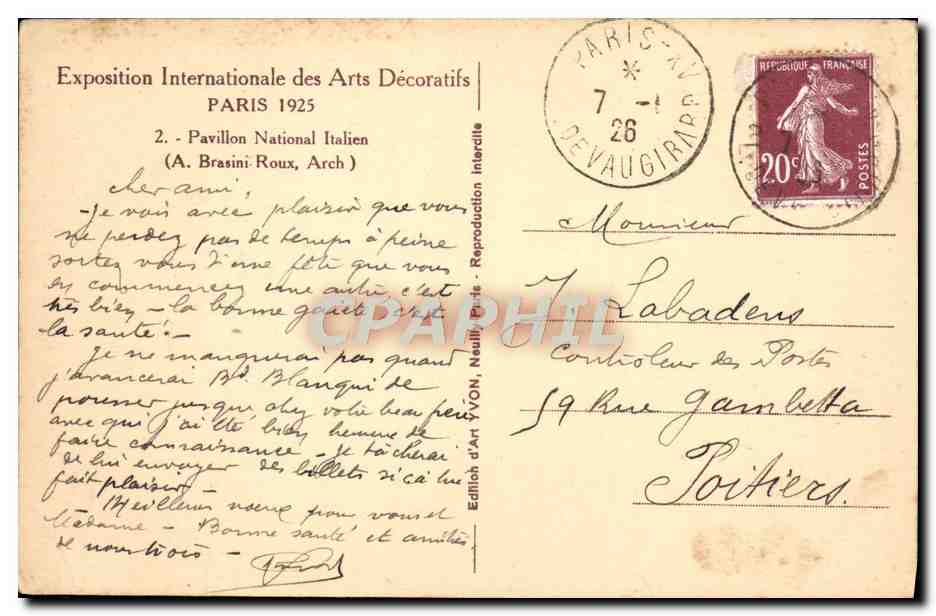 Exposition Internationale des Arts Décoratifs
PARIS 1925
2. - Pavillon National Italien
(A. Brasini-Roux, Arch )
cher ami,
Je vois avec plaisir que vous
ne perdez pas de temps à peine
sortez vous d'une fête que vous
en commencez une autre c'est
très bien - la bonne gaieté c'est
la santé -
Je ne manquerai pas quand
j'avancerai Bd Blanqui de
pousser jusque chez votre beau père
avec qui j'ai été bien heureux de
faire connaissance - Je tâcherai
de lui envoyer des billets si ça lui
fait plaisir -
Meilleurs voeux pour vous et
Madame - Bonne santé et amitiés
de nous trois -
Edition d'Art YVON, Neuilly-Paris - Reproduction interdite
PARIS-XV
*
7 -1
26
R. DE VAUGIRARD
REPUBLIQUE FRANÇAISE
20c
POSTES
Monsieur
J. Labadens
Controleur des Postes
59 Rue Gambetta
Poitiers.
CPAPHIL